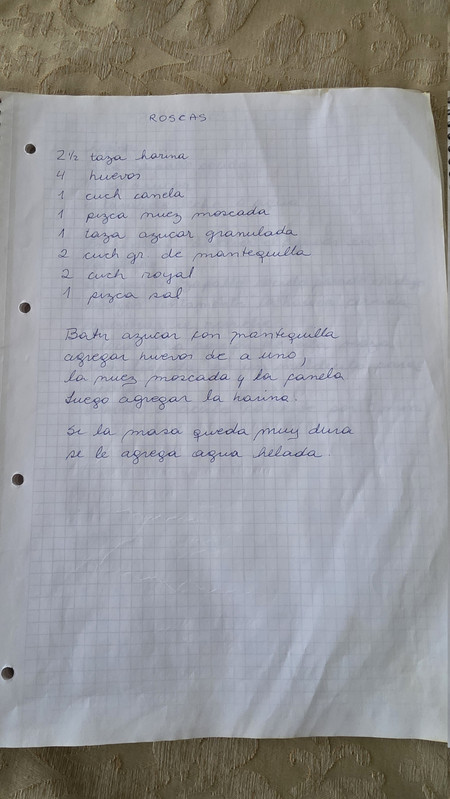 ROSCAS
2 1/2 taza harina
4 huevos
1 cuch canela
1 pizca nuez moscada
1 taza azucar granulada
2 cuch gr. de mantequilla
2 cuch royal
1 pizca sal
Batir azucar con mantequilla
agregar huevos de a uno,
la nuez moscada y la canela
Luego agregar la harina.
Si la masa queda muy dura
se le agrega agua helada.